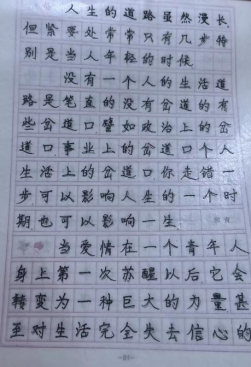 人生的道路虽然漫长
但紧要处常常只有几步特
别是当人年轻的时候
没有一个人的生活道
路是笔直的没有岔道的有
些岔道口譬如政治上的岔
道口事业上的岔道口个人
生活上的岔道口你走错一
步可以影响人生的一个时
期也可以影响一生
当爱情在一个青年人
身上第一次苏醒以后它会
转变为一种巨大的力量甚
至对生活完全失去信心的